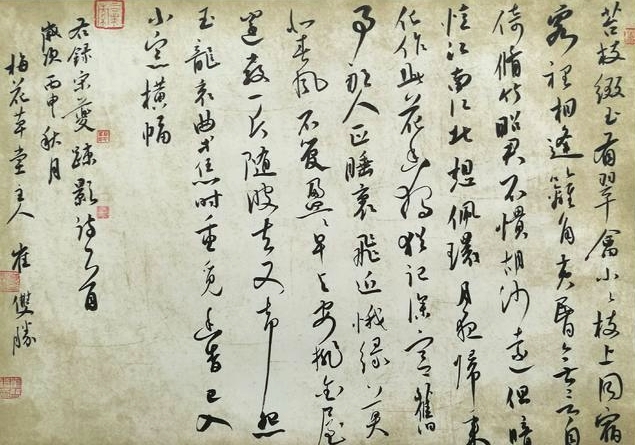 苔枝缀玉有翠禽小〻枝上同宿
客裡相逢籬角黄昏無言自
倚脩竹昭君不慣胡沙遠但暗
憶江南江北想佩環月夜歸来
化作此花幽獨猶記深宫舊
事那人正睡裏飛近蛾緑莫
似春風不管盈〻早与安排金屋
還教一片随波去又却怨
玉龍哀曲等恁時重覓幽香已入
小窓横幅
右録宋夔疎影诗一首
歲次丙申秋月
梅花草堂主人崔雙勝